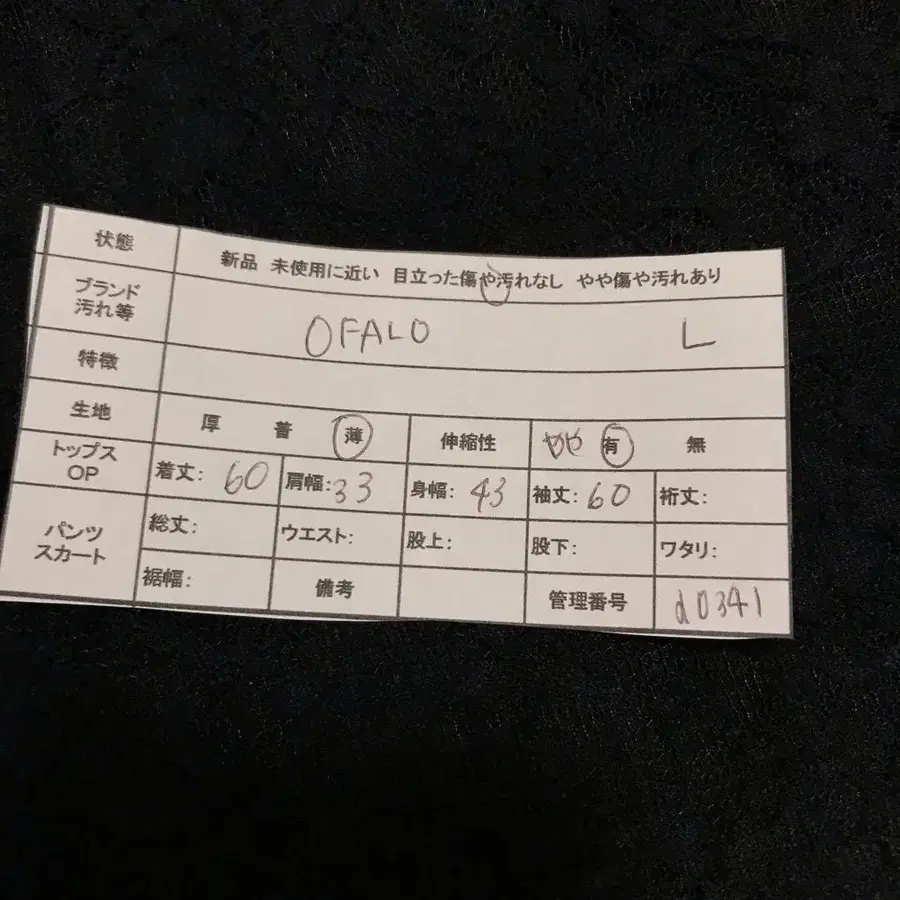 状態 新品 未使用に近い 目立った傷や汚れなし やや傷や汚れあり
ブランド
汚れ等 OFALO L
特徴
生地 厚 普 薄 伸縮性 やや 有 無
トップス
OP 着丈: 60 肩幅: 33 身幅: 43 袖丈: 60 裄丈:
パンツ
スカート 総丈: ウエスト: 股上: 股下: ワタリ:
裾幅: 備考 管理番号 d0341